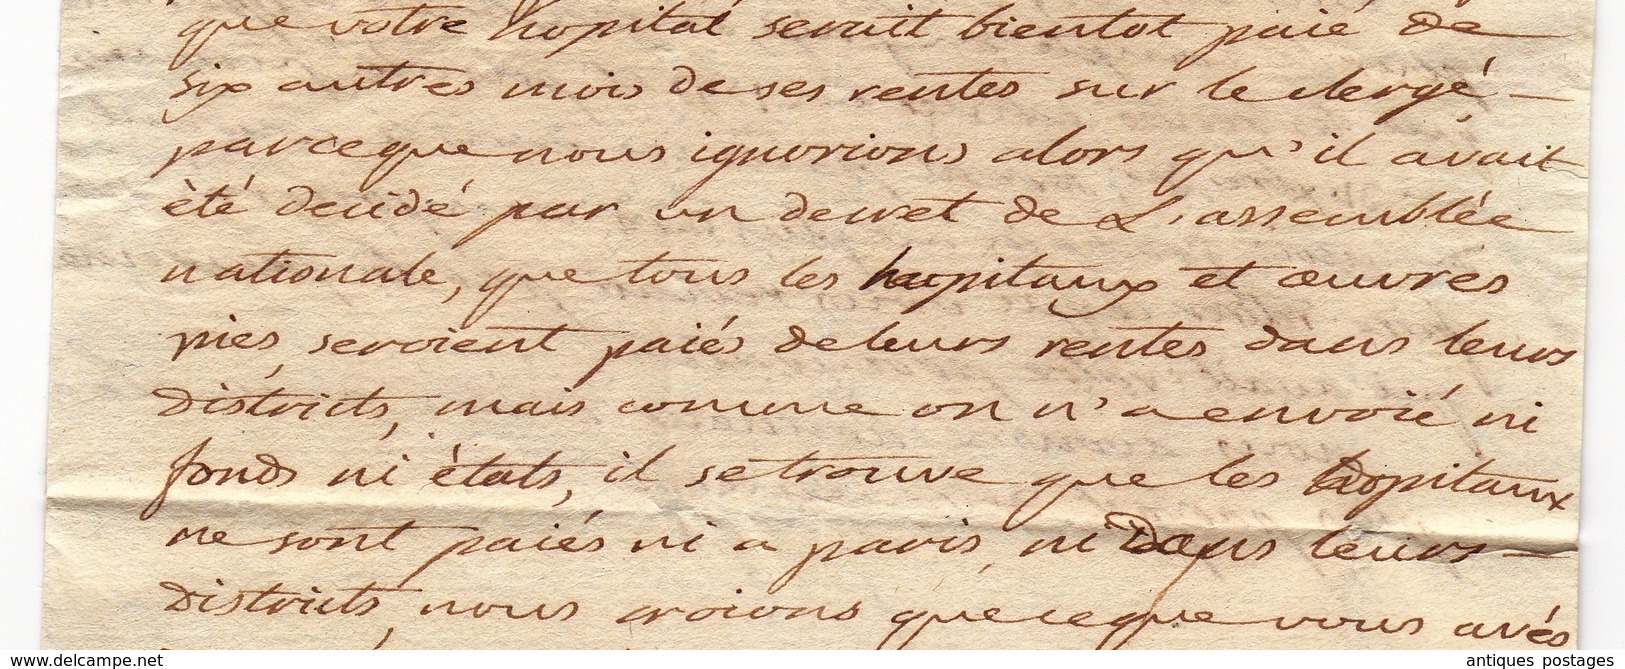 que votre hopital seroit bientot paié de
six autres mois de ses rentes sur le clergé –
parceque nous ignorions alors qu'il avait
èté decidé par un decret de L'assemblée
nationale, que tous les hopitaux et œuvres
pies, seroient paiés de leurs rentes dans leurs
districts, mais comme on n'a envoié ni
fonds ni ètats, il se trouve que les hopitaux
ne sont paiés ni a paris, ni Dans leurs –
districts, nous croions que ceque vous avés
www.delcampe.net
antiques postages